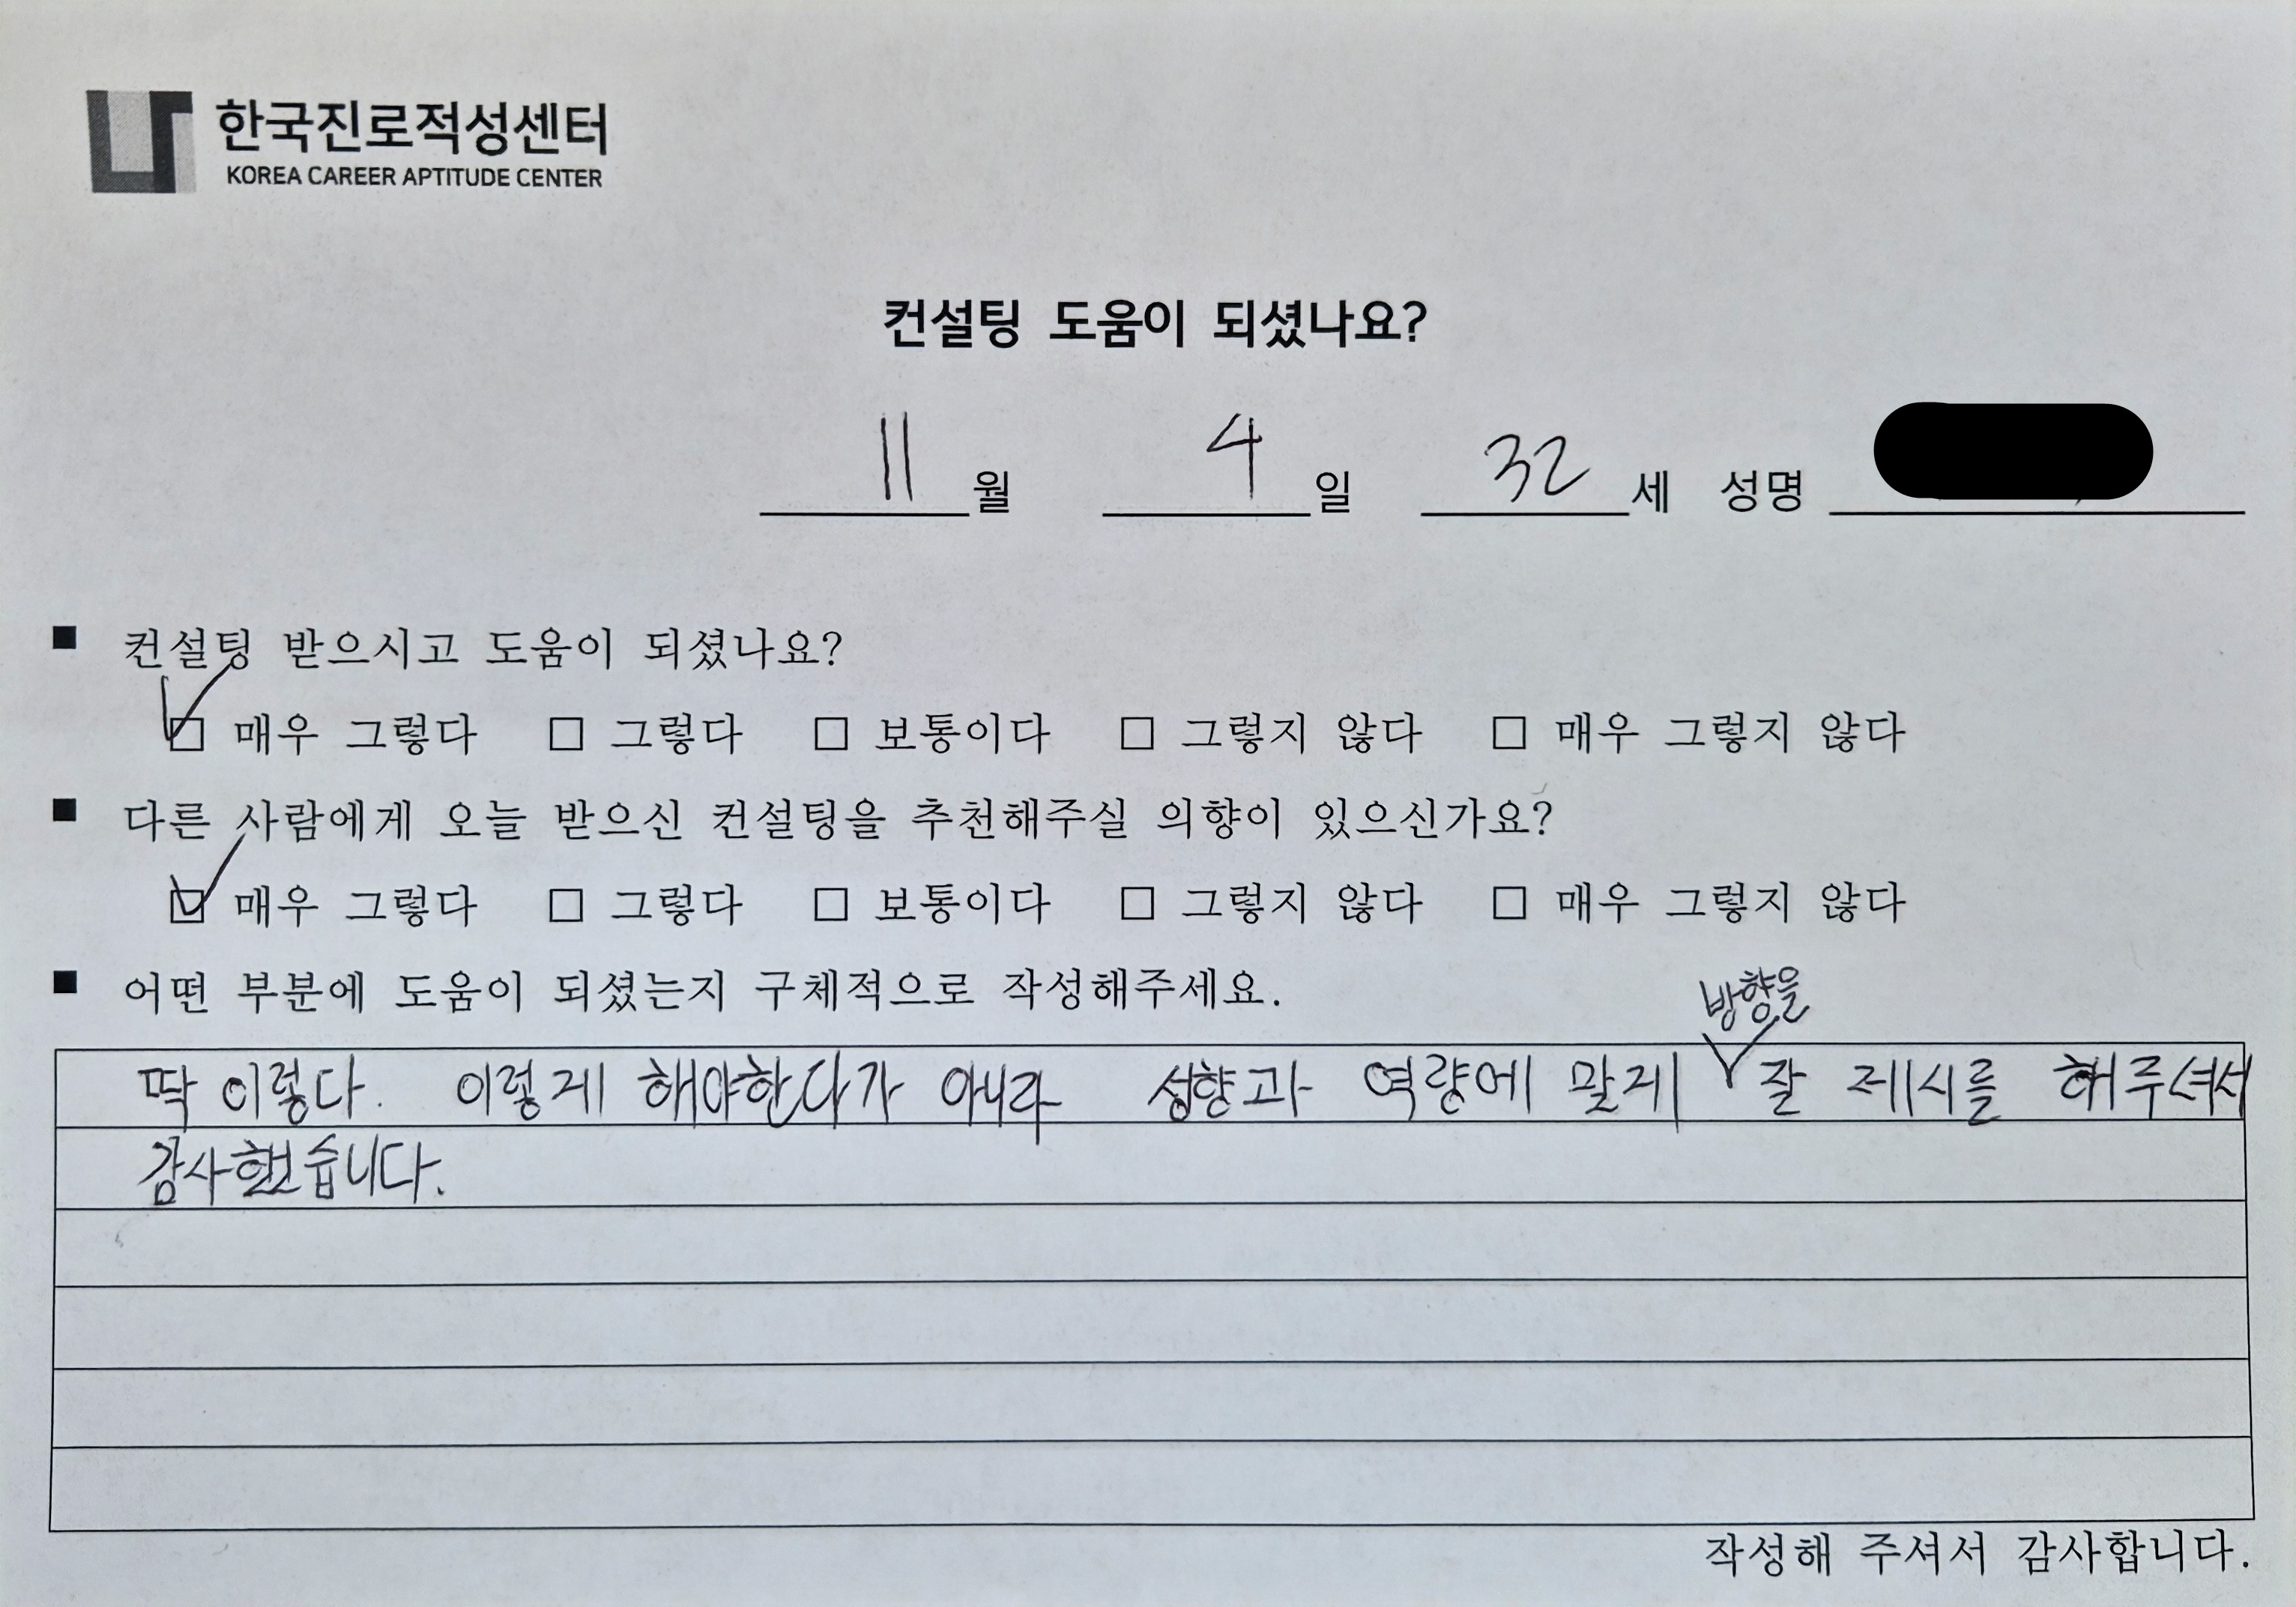 한국진로적성센터
KOREA CAREER APTITUDE CENTER
컨설팅 도움이 되셨나요?
11 월 4 일 32 세 성명
■ 컨설팅 받으시고 도움이 되셨나요?
☑ 매우 그렇다 □ 그렇다 □ 보통이다 □ 그렇지 않다 □ 매우 그렇지 않다
■ 다른 사람에게 오늘 받으신 컨설팅을 추천해주실 의향이 있으신가요?
☑ 매우 그렇다 □ 그렇다 □ 보통이다 □ 그렇지 않다 □ 매우 그렇지 않다
■ 어떤 부분에 도움이 되셨는지 구체적으로 작성해주세요.
방향을
딱 이렇다. 이렇게 해야한다가 아니라 성향과 역량에 맞게 잘 제시를 해주셔서
감사했습니다.
작성해 주셔서 감사합니다.